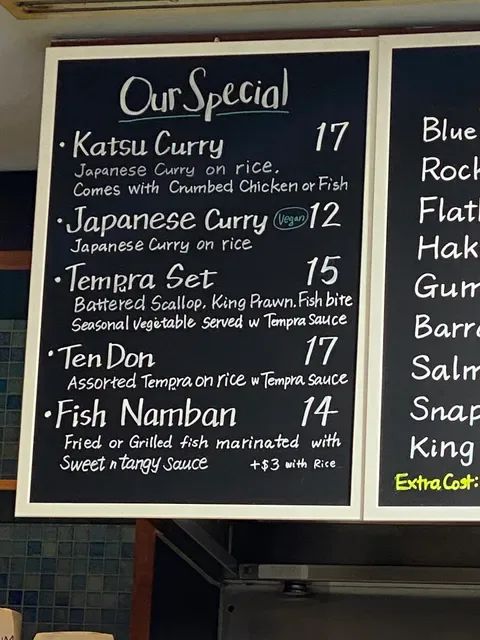 Our Special
• Katsu Curry 17
Japanese Curry on rice.
Comes with Crumbed Chicken or Fish
• Japanese Curry Vegan 12
Japanese Curry on rice
• Tempra Set 15
Battered Scallop, King Prawn, Fish bite
Seasonal vegetable served w Tempra Sauce
• Ten Don 17
Assorted Tempra on rice w Tempra Sauce
• Fish Namban 14
Fried or Grilled fish marinated with
Sweet n tangy Sauce +$3 with Rice
Blue
Rock
Flat
Hak
Gum
Barr
Salm
Snap
King
Extra Cost: